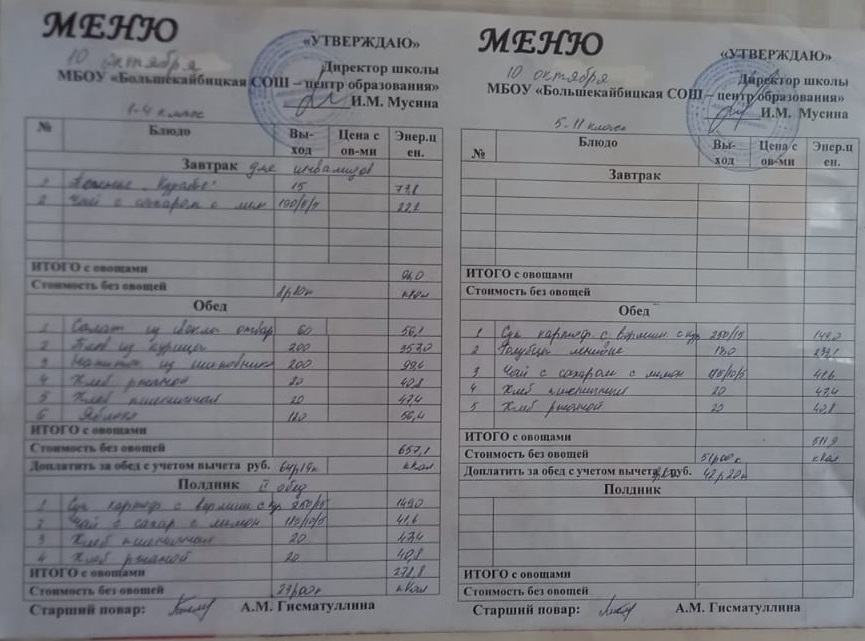 МЕНЮ
10 октября
«УТВЕРЖДАЮ»
Директор школы
МБОУ «Большекайбицкая СОШ – центр образования»
И.М. Мусина
1-4 класс
№ Блюдо Вы-ход Цена с ов-ми Энер.ц ен.
Завтрак для инвалидов
1 Печенье "Курабье" 15 73,8
2 Чай с сахаром с лим 22,2
ИТОГО с овощами 96,0
Стоимость без овощей 8р80к ккал
Обед
1 Салат из свеклы отвар 60 56,1
2 Плов из курицы 200 357,0
3 Напиток из шиповника 200 99,4
4 Хлеб ржаной 20 40,8
5 Хлеб пшеничный 20 47,4
6 Яблоко 56,4
ИТОГО с овощами
Стоимость без овощей 657,1
Доплатить за обед с учетом вычета руб. 64р19к ккал
Полдник II обед
1 Суп картоф. с вермиш с кур 250/15 149,0
2 Чай с сахар с лимон 41,6
3 Хлеб пшеничный 20 47,4
4 Хлеб ржаной 20 40,8
ИТОГО с овощами 278,8
Стоимость без овощей 29р00к ккал
Старший повар: А.М. Гисматуллина
МЕНЮ
10 октября
«УТВЕРЖДАЮ»
Директор школы
МБОУ «Большекайбицкая СОШ – центр образования»
И.М. Мусина
5-11 классы
№ Блюдо Вы-ход Цена с ов-ми Энер.ц ен.
Завтрак
ИТОГО с овощами
Стоимость без овощей
Обед
1 Суп картоф. с вермиш. с кур 250/15 149,0
2 Голубцы ленивые
3 Чай с сахаром с лимон 41,6
4 Хлеб пшеничный 20 47,4
5 Хлеб ржаной 20 40,8
ИТОГО с овощами 511,9
Стоимость без овощей 51р00к ккал
Доплатить за обед с учетом вычета руб. 42р20к
Полдник
ИТОГО с овощами
Стоимость без овощей
Старший повар: А.М. Гисматуллина